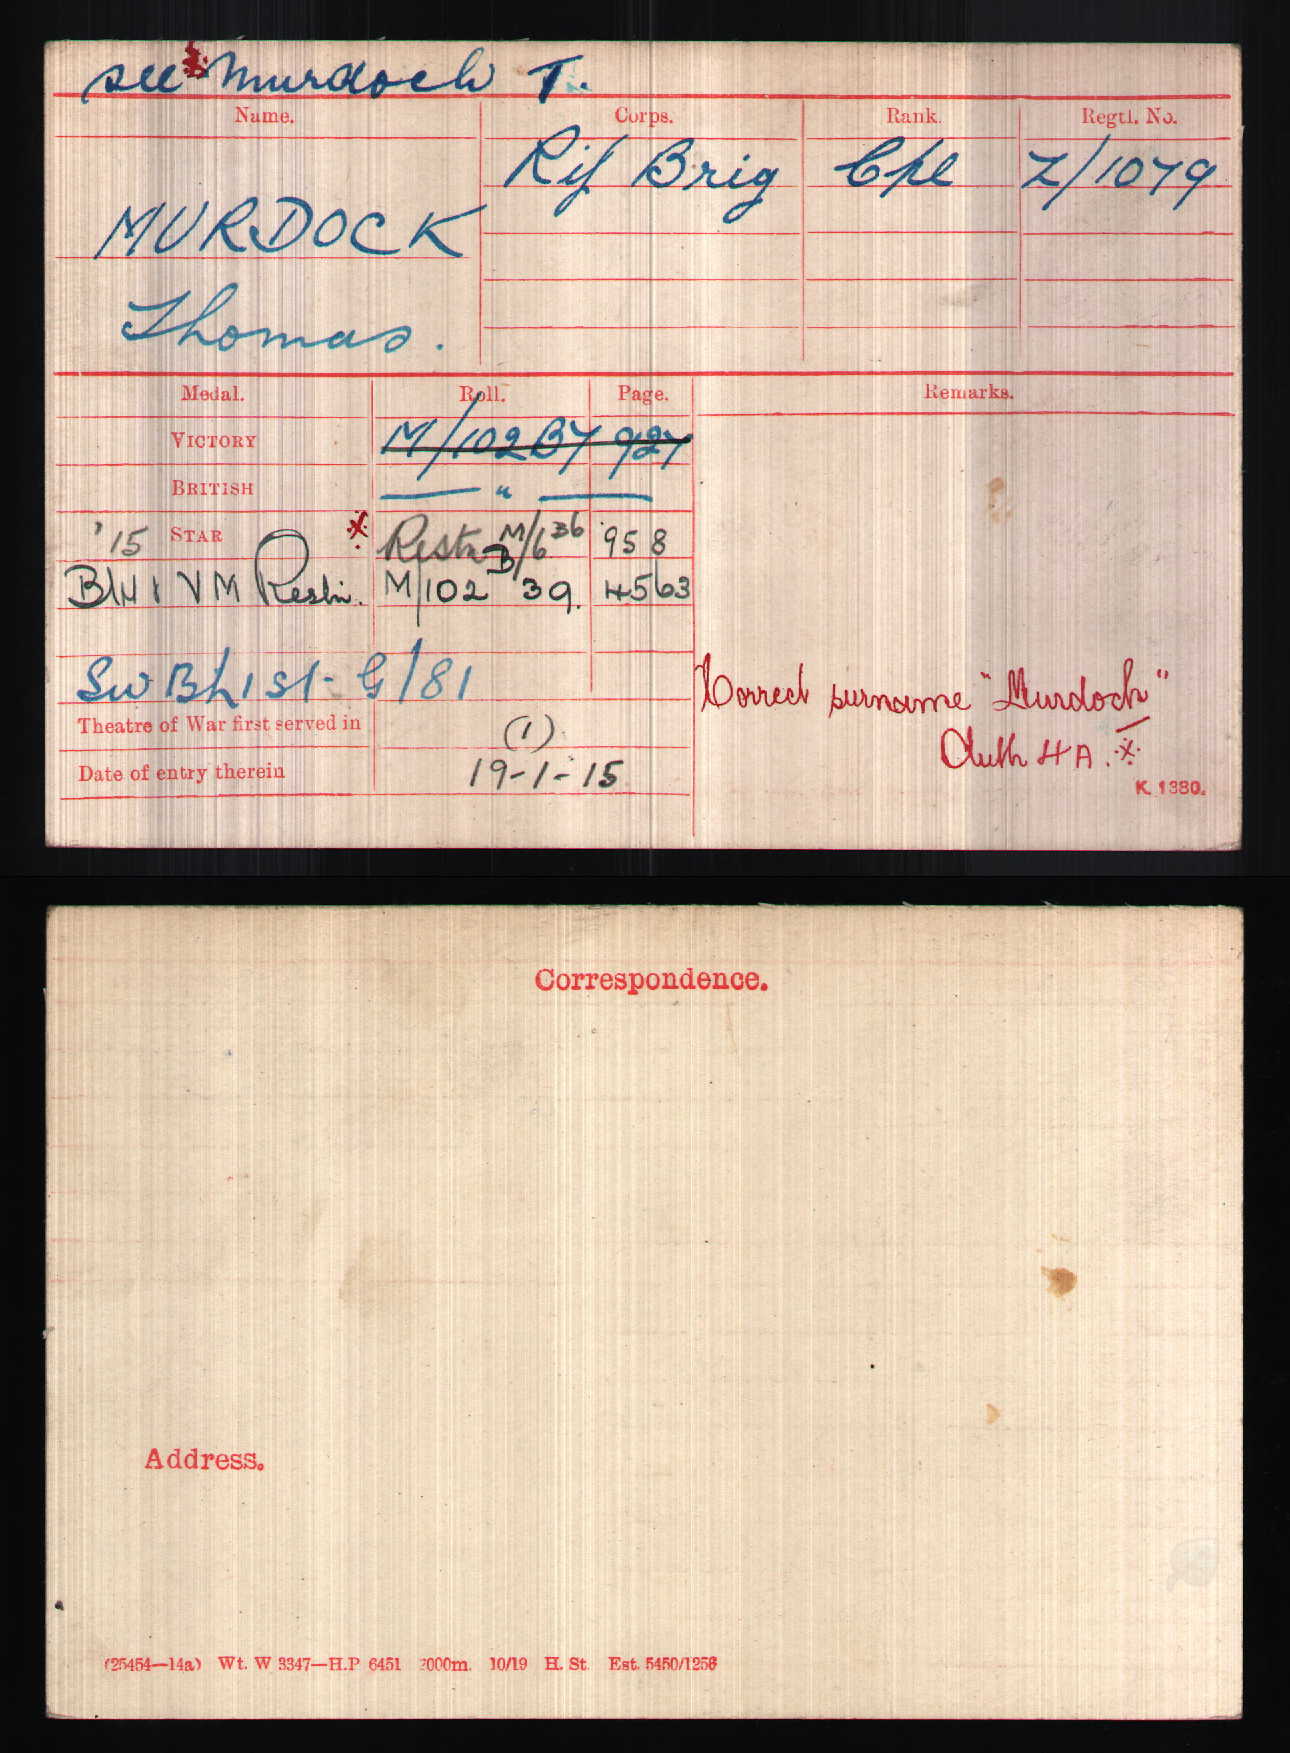 see Murdoch T.
Name. Corps. Rank. Regtl. No.
Rif Brig Cpl Z/1079
MURDOCK
Thomas.
Medal. Roll. Page. Remarks.
VICTORY M/102B7 927
BRITISH — " —
'15 STAR Restn M/6 B6 958
BW & VM Restn. M/102 B39. 4563
Sw B h 1 St- G/81
Correct surname "Murdoch"
Theatre of War first served in (1)
Auth HA.
Date of entry therein 19-1-15
K. 1380.
Correspondence.
Address.
(25454—14a) Wt. W 3347—H.P 6451 2000m. 10/19 H. St. Est. 5450/1256